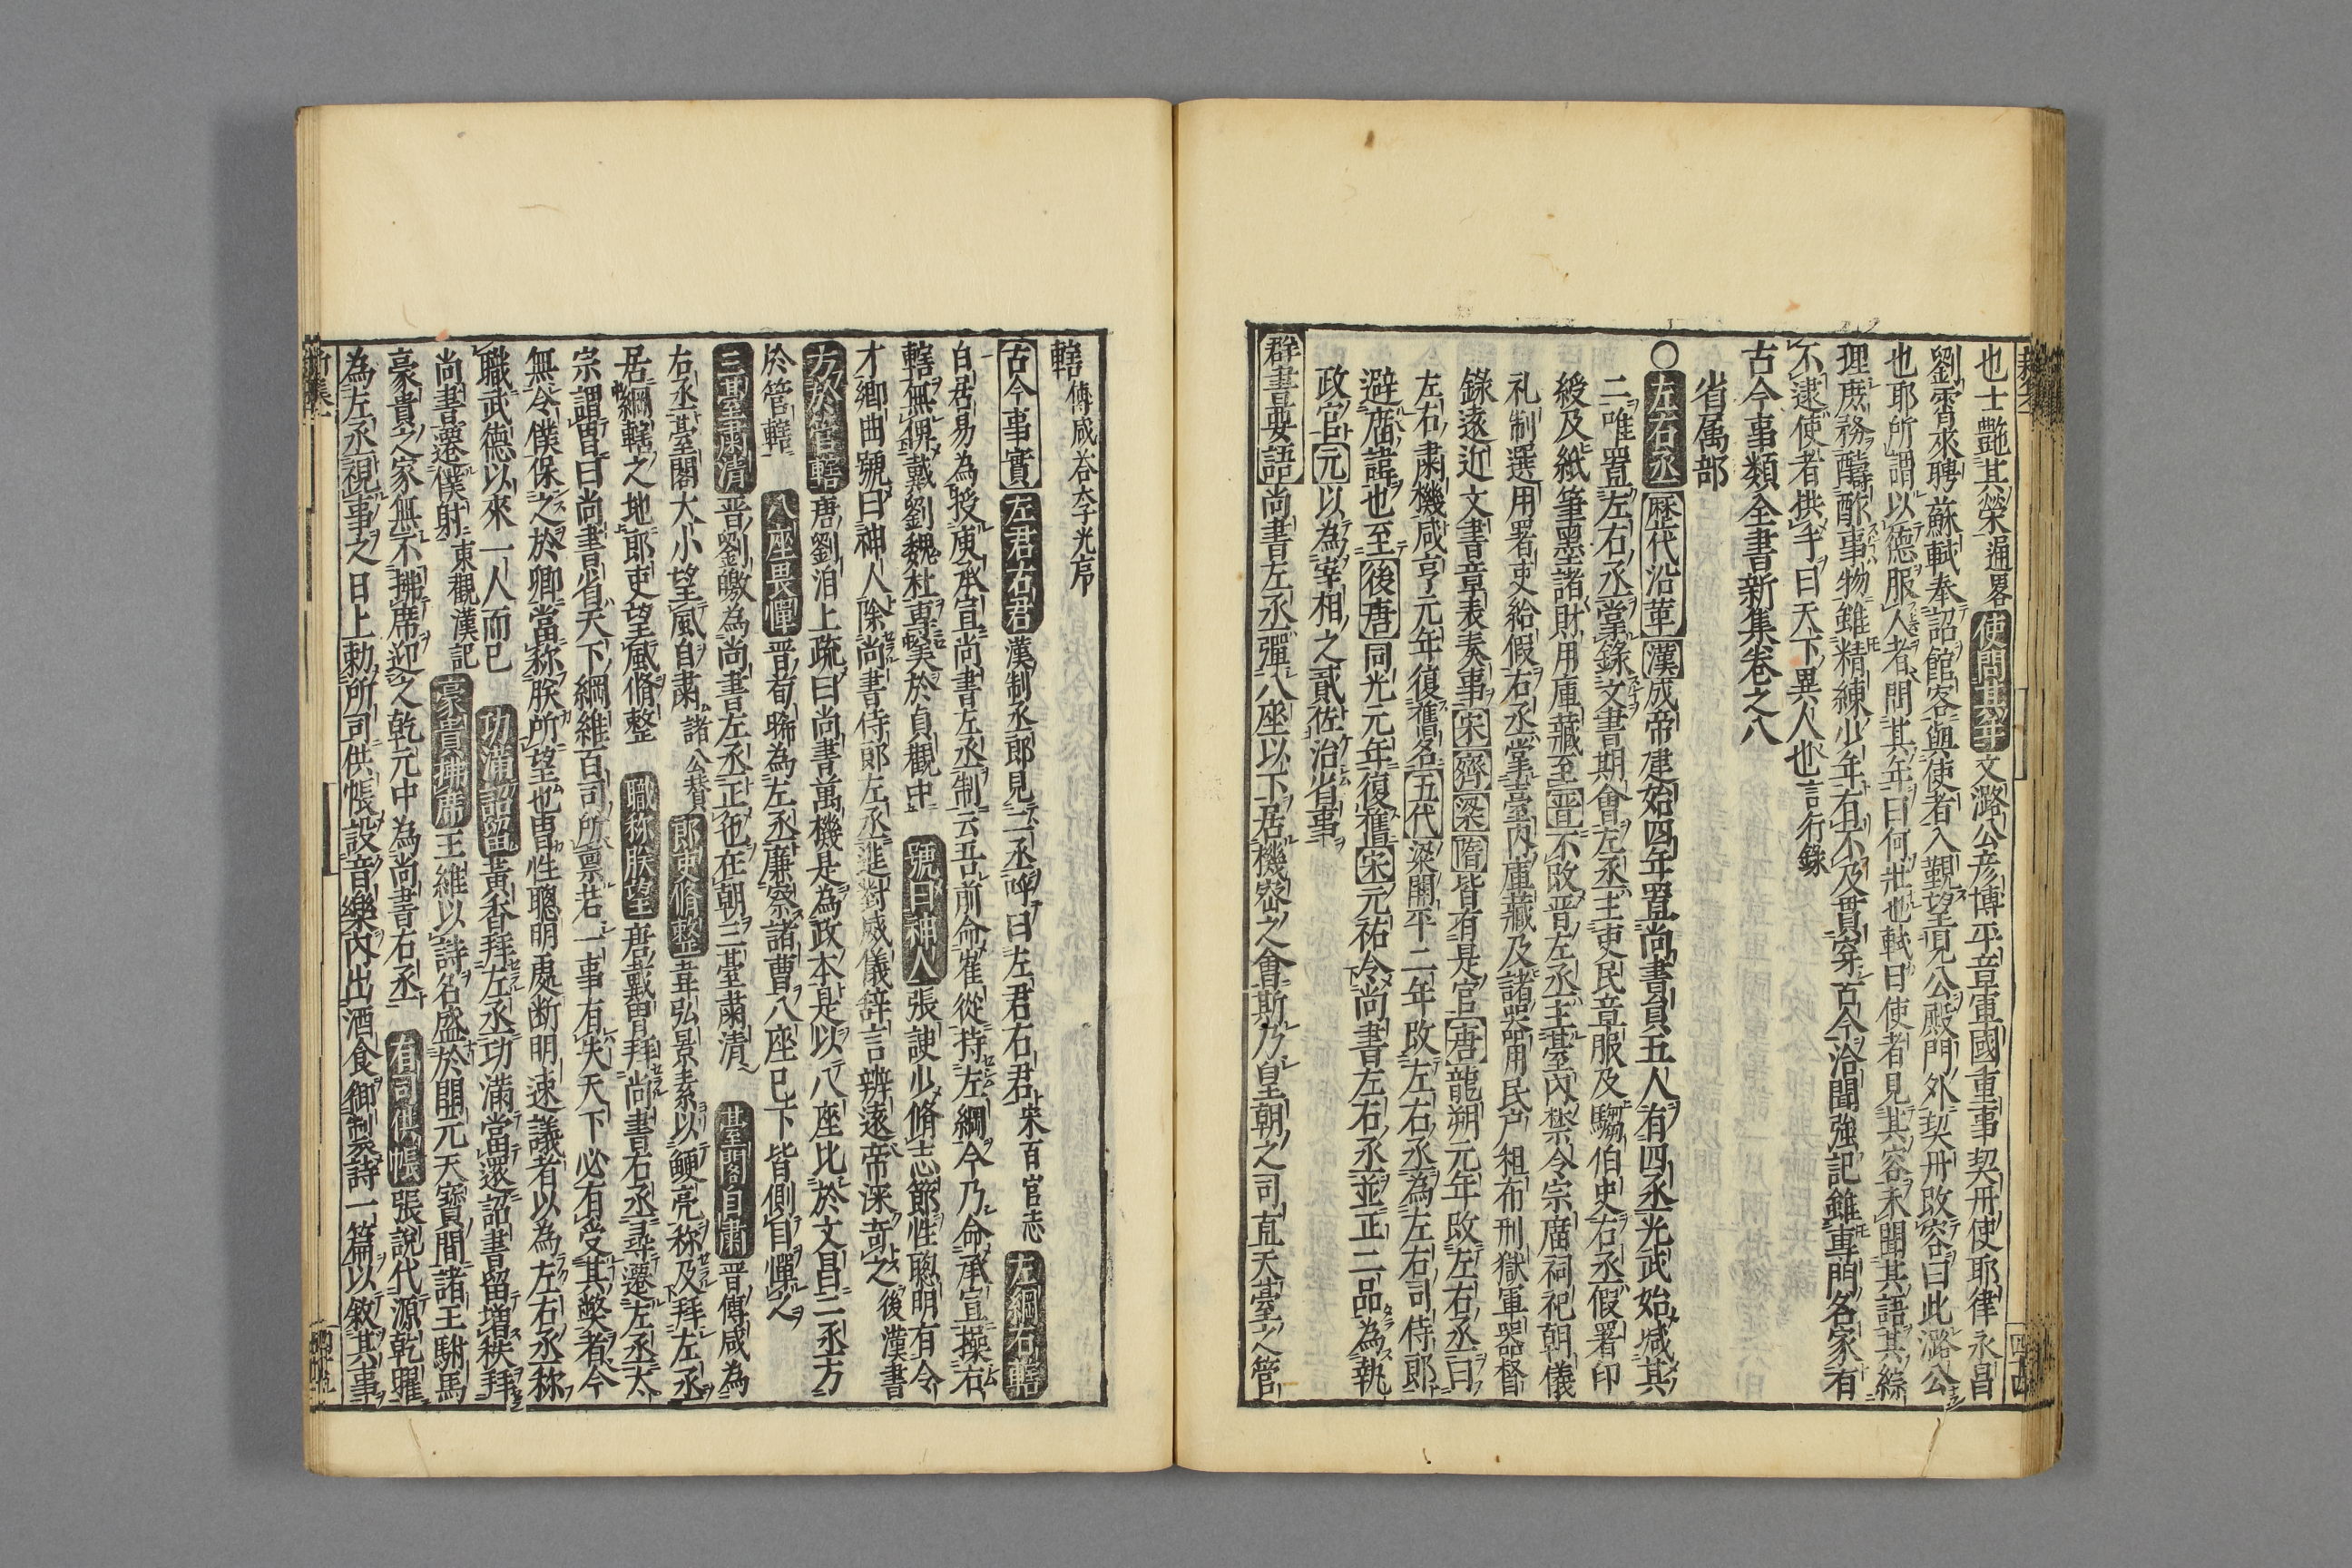 也士艶其榮通畧使問其年文潞公彦博平章軍國重事契丹使耶律永昌
劉霄來聘蘇軾奉詔館客與使者入覲望見公殿門外契丹改容曰此潞公
也耶所謂以德服人者問其年曰何壯也軾曰使者見其容未聞其語其綜
理庶務酧酢事物雖精練少年有不及貫穿古今洽聞強記雖專門名家有
不逮使者拱手曰天下異人也言行錄
古今事類全書新集卷之八
省属部
○左右丞歷代沿革漢成帝建始四年置尚書員五人有四丞光武始减其
二唯置左右丞掌錄文書期會左丞主吏民章服及騶伯史右丞假署印
綬及紙筆墨諸財用庫藏至晋不改晋左丞主臺內禁令宗廣祠祀朝儀
礼制選用署吏給假右丞掌臺內庫藏及諸器用民户租布刑獄軍器督
錄遠近文書章表奏事宋齊梁隋皆有是官唐龍朔元年改左右丞曰
左右肅機咸亨元年復舊名五代梁開平二年改左右丞為左右司侍郎
避庿諱也至後唐同光元年復舊宋元祐令尚書左右丞並正二品為執
政官元以為宰相之貳佐治省事
群書要語尚書左丞彈八座以下居機密之會斯乃皇朝之司直天臺之管
轄傅咸荅李光序
古今事實左君右君漢制丞郎見二丞呼曰左君右君宋百官志左綱右轄
白居易為授庾承宣尚書左丞制云吾前命崔從持左綱今乃命承宣操右
轄無俾戴劉魏杜專美於貞觀中號曰神人張諛少脩志節性聰明有令
才鄉曲號曰神人除尚書侍郎左丞進對威儀辞言辨遠帝深奇之後漢書
方於管轄唐劉洎上疏曰尚書萬機是為政本是以八座比於文昌二丞方
於管轄八座畏憚晋荀晞為左丞廉察諸曹八座已下皆側目憚之
三臺肅清晋劉皦為尚書左丞正色在朝三臺肅清臺閣自肅晋傅咸為
右丞臺閣大小望風自肅諸公賛郎吏脩整韋弘景素以鯁亮称及拜左丞
居綱轄之地郎吏望風脩整職称朕望唐戴胄拜尚書右丞尋遷左丞太
宗謂胄曰尚書省天下綱維百司所禀若一事有失天下必有受其弊者今
無令僕保之於卿當称朕所望也胄性聰明處断明速議者以為左右丞称
職武德以來一人而已功滿詔留黃香拜左丞功滿當遷詔書留增秩拜
尚書遷僕射東觀漢記豪貴拂席王維以詩名盛於開元天寶間諸王駙馬
豪貴之家無不拂席迎之乾元中為尚書右丞有司供帳張說代源乾曜
為左丞視事之日上勅所司供帳設音樂內出酒食御製詩一篇以敘其事